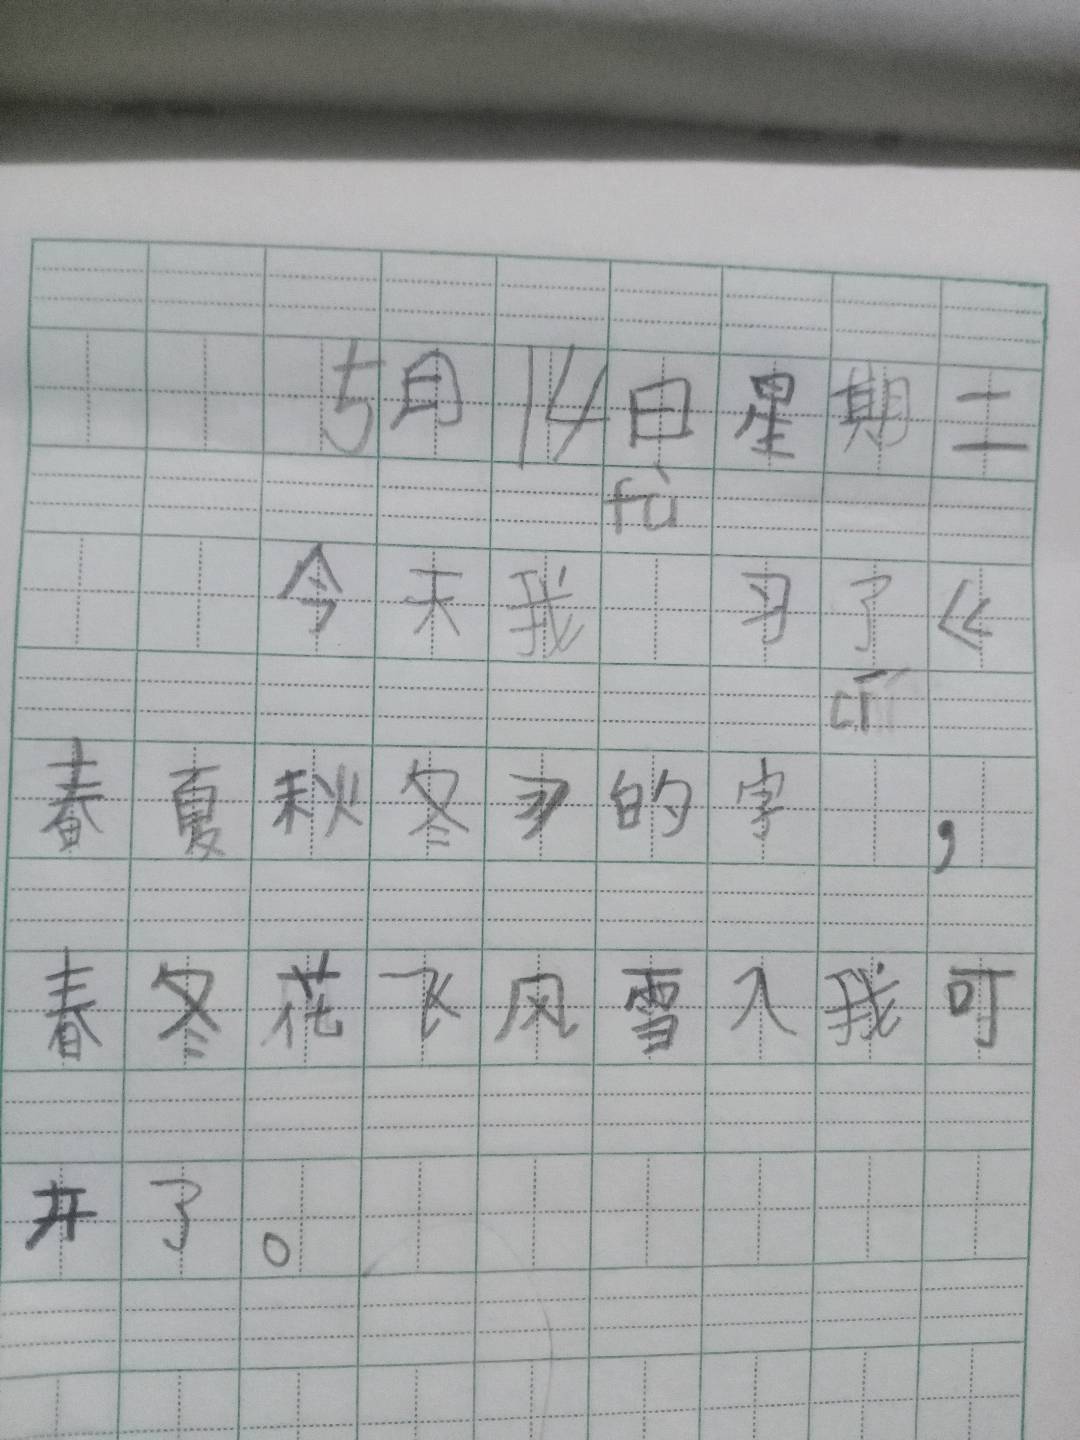 5月14日星期二
fù
今天我 习了《
cí
春夏秋冬》的字 ,
春冬花飞风雪入我可
开了。